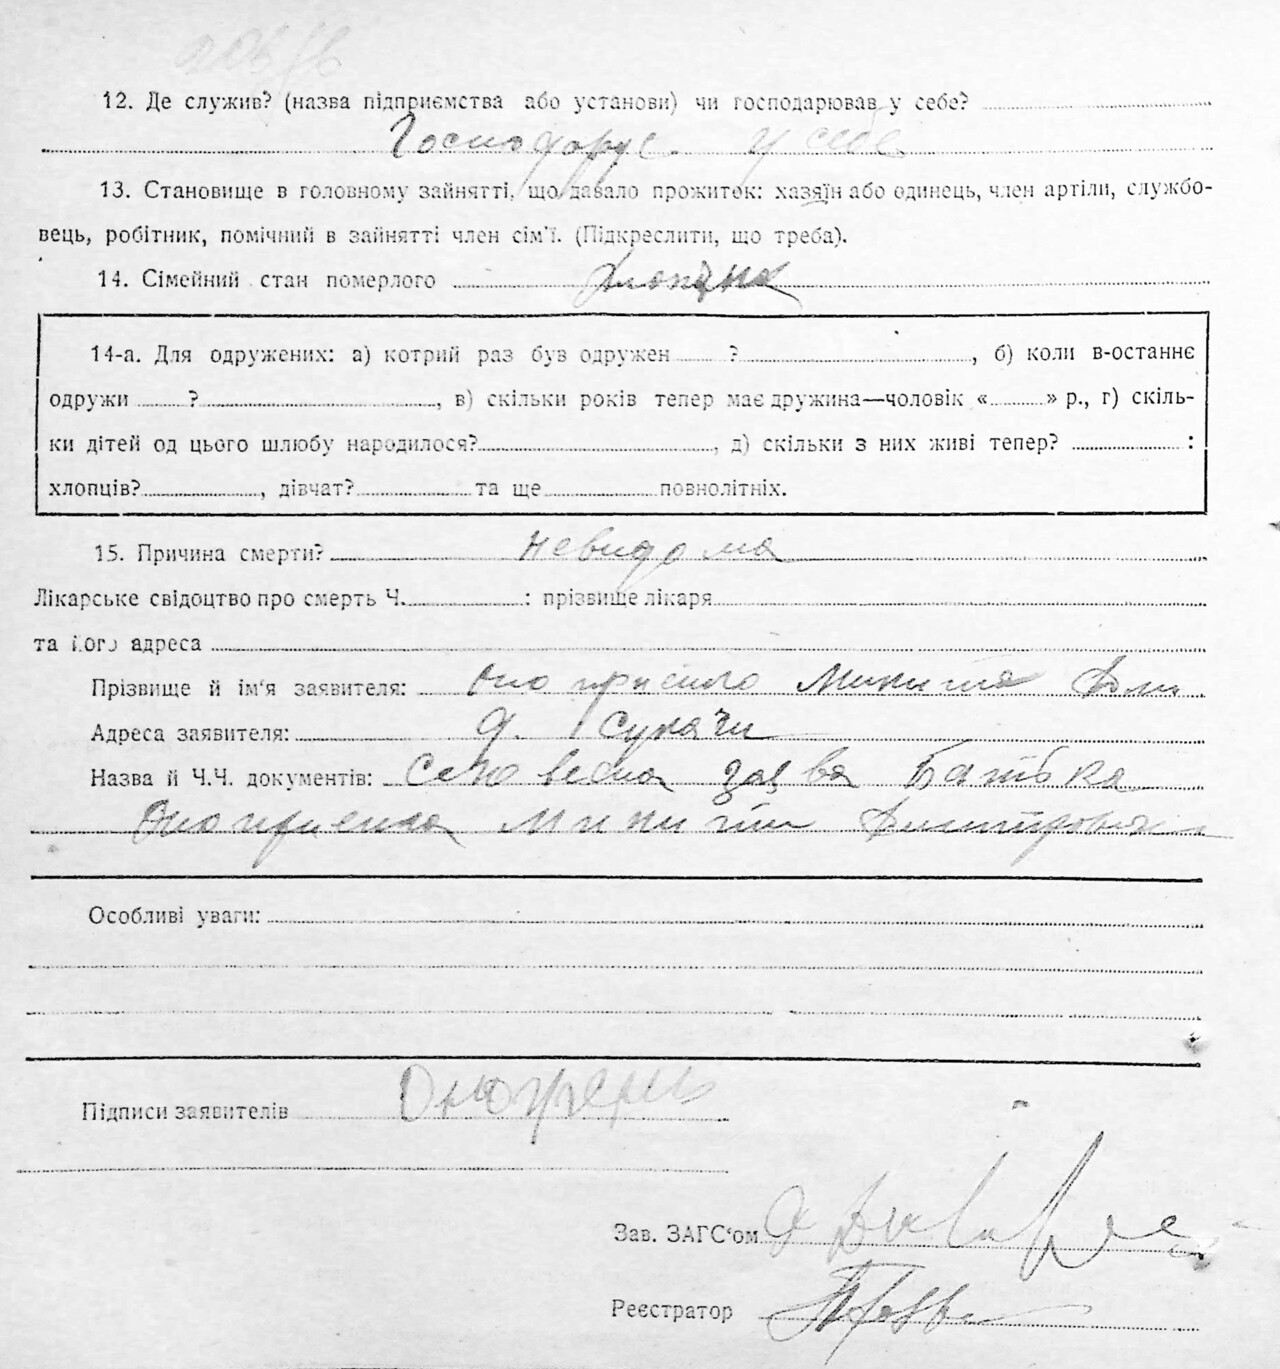 12. Де служив? (назва підприємства або установи) чи господарював у себе?
Господарює у себе
13. Становище в головному зайнятті, що давало прожиток: хазяїн або одинець, член артіли, службо-
вець, робітник, помічний в зайнятті член сім'ї. (Підкреслити, що треба).
14. Сімейний стан померлого
14-а. Для одружених: а) котрий раз був одружен ?, б) коли в-останнє
одружи ?, в) скільки років тепер має дружина—чоловік « » р., г) скіль-
ки дітей од цього шлюбу народилося?, д) скільки з них живі тепер? :
хлопців?, дівчат? та ще повнолітніх.
15. Причина смерти? невидома
Лікарське свідоцтво про смерть Ч. : прізвище лікаря
та його адреса
Прізвище й ім'я заявителя: Микита
Адреса заявителя: Сукачи
Назва й Ч.Ч. документів: заява Батька
Микити Дмитровича
Особливі уваги:
Підписи заявителів
Зав. ЗАГС'ом
Реєстратор